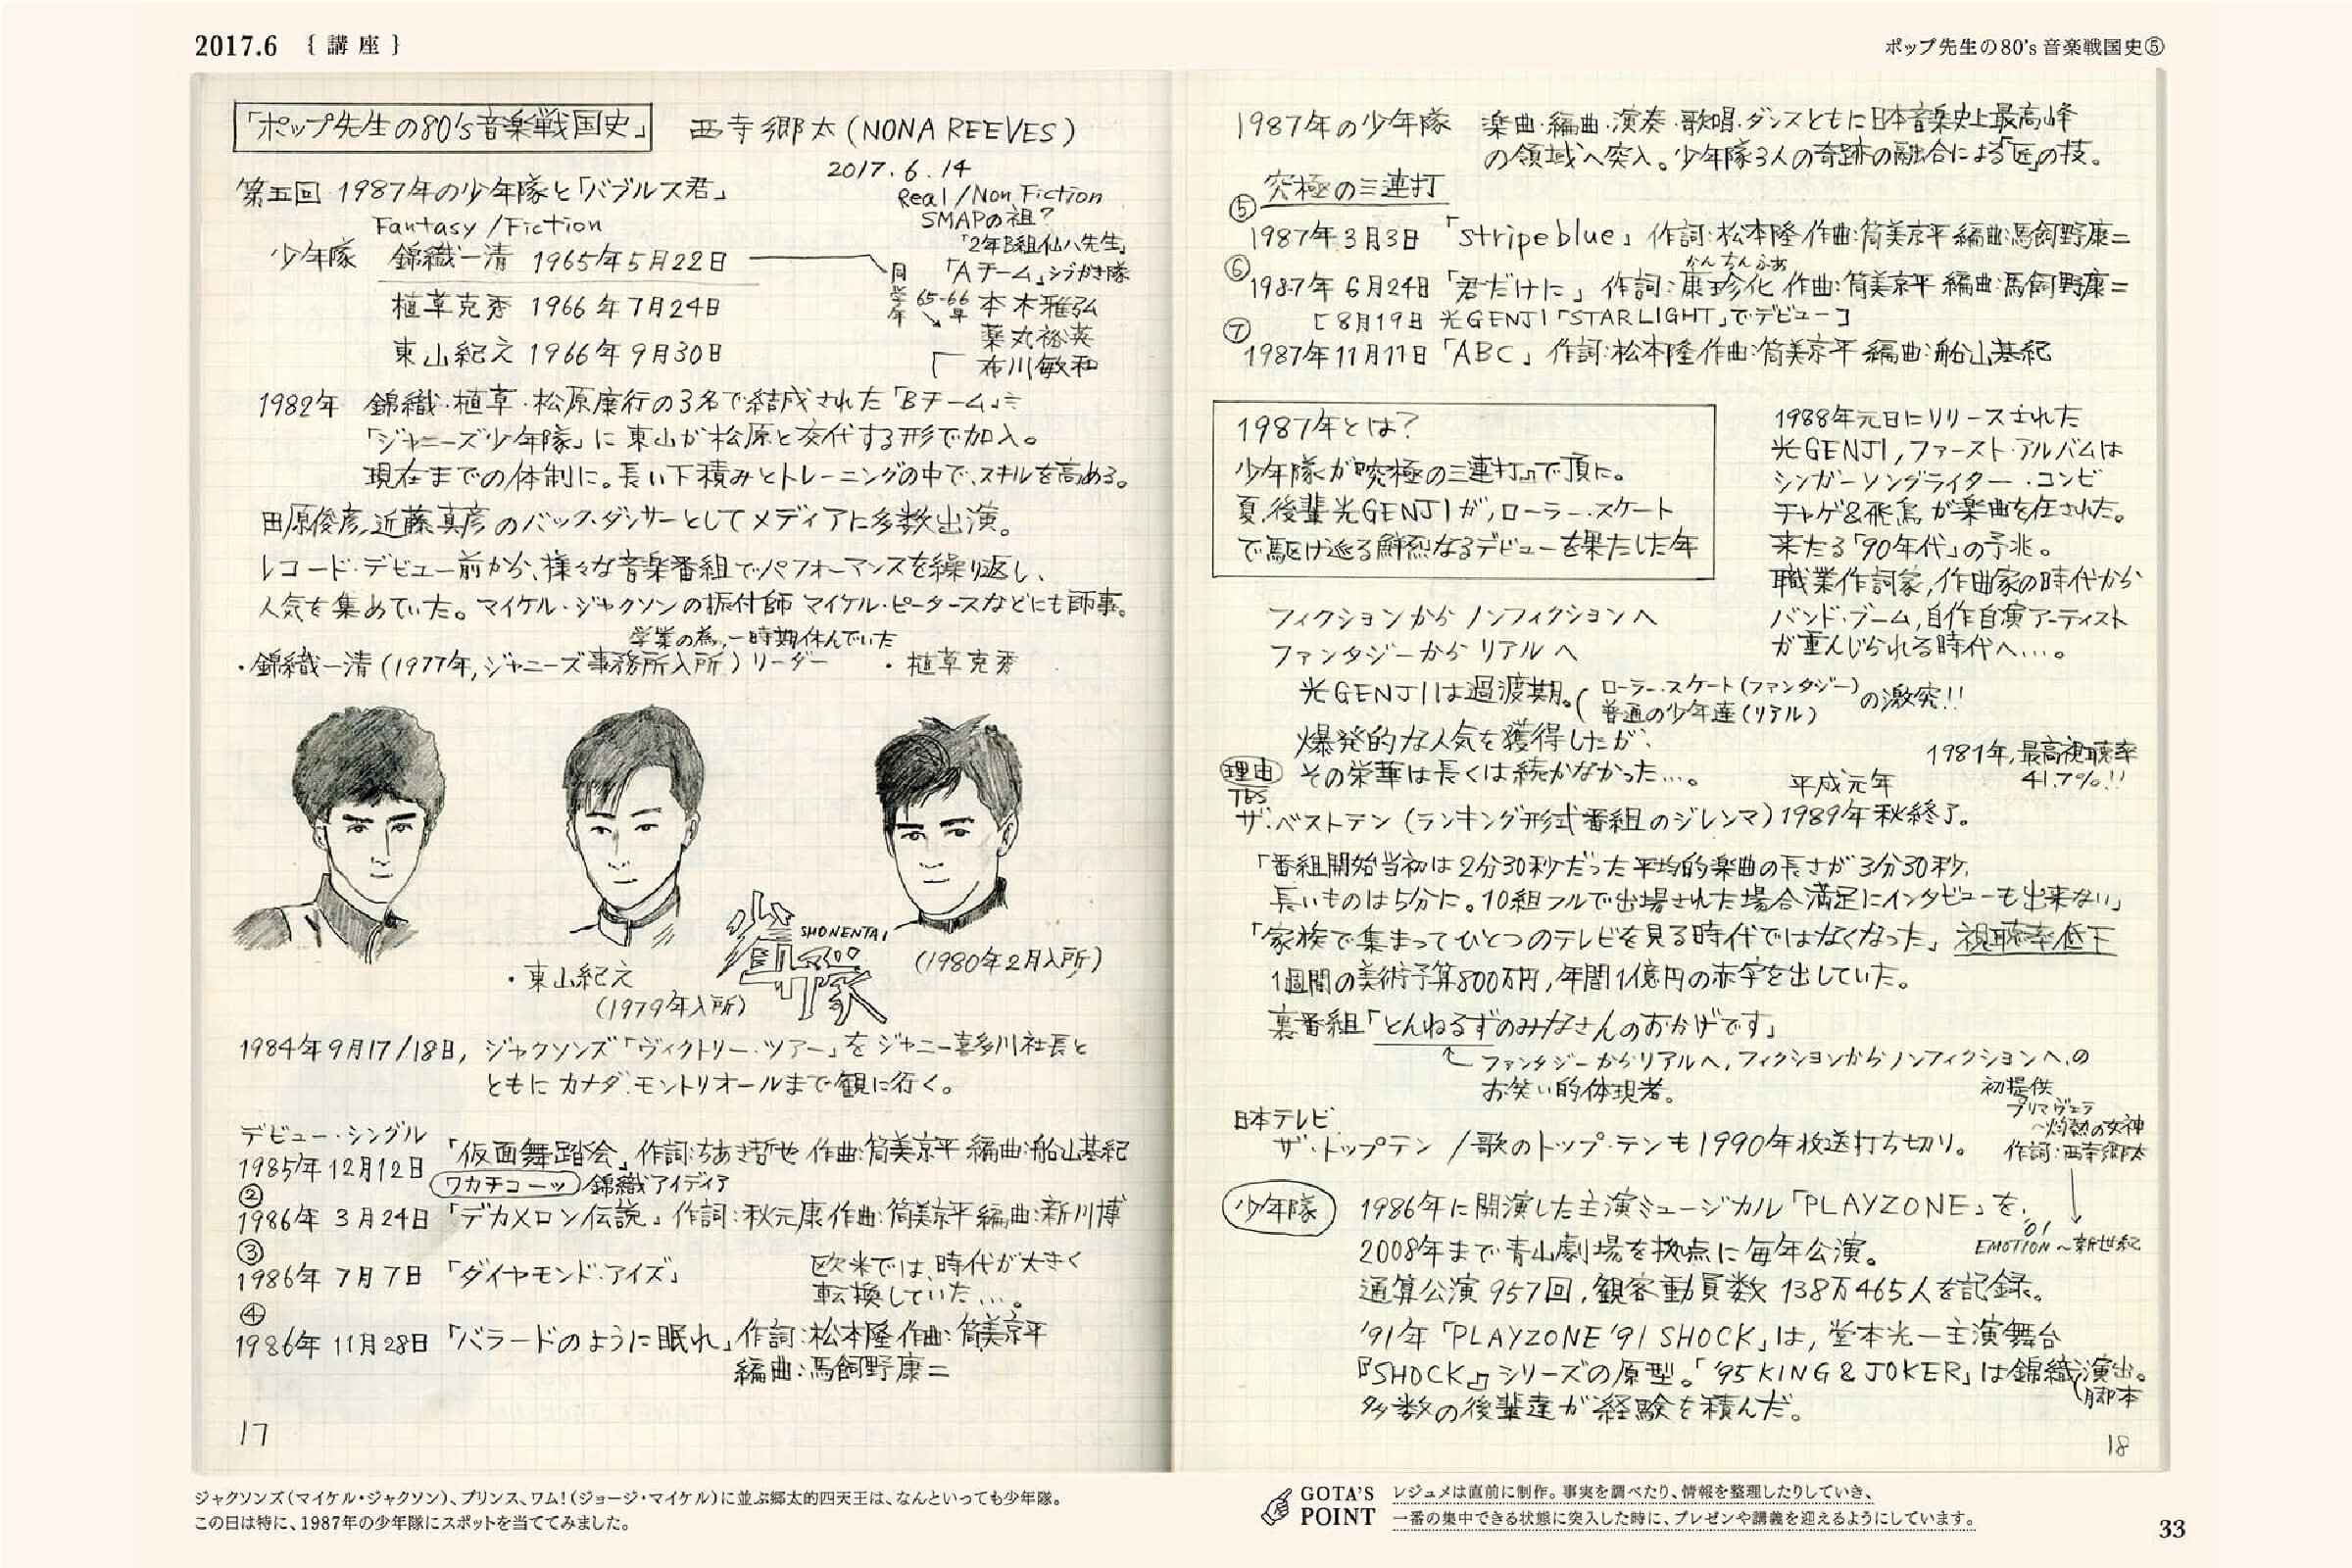 2017.6 {講座}
ポップ先生の80's音楽戦国史⑤
「ポップ先生の80's音楽戦国史」 西寺郷太(NONA REEVES)
2017.6.14
第五回 1987年の少年隊と「バブルス君」
Fantasy/Fiction
Real/Non Fiction
SMAPの祖?
「2年B組仙八先生」
「Aチーム」シブがき隊
少年隊 錦織一清 1965年5月22日
植草克秀 1966年7月24日
東山紀之 1966年9月30日
同学年
65-66年
本木雅弘
薬丸裕英
布川敏和
1982年 錦織・植草・松原康行の3名で結成された「Bチーム」=
「ジャニーズ少年隊」に東山が松原と交代する形で加入。
現在までの体制に。長い下積みとトレーニングの中で、スキルを高める。
田原俊彦、近藤真彦のバック・ダンサーとしてメディアに多数出演。
レコード・デビュー前から、様々な音楽番組でパフォーマンスを繰り返し、
人気を集めていた。マイケル・ジャクソンの振付師 マイケル・ピータースなどにも師事。
学業の為、一時期休んでいた
・錦織一清(1977年、ジャニーズ事務所入所)リーダー ・植草克秀
少年隊 SHONENTAI
(1980年2月入所)
・東山紀之
(1979年入所)
1984年9月17/18日, ジャクソンズ「ヴィクトリー・ツアー」をジャニー喜多川社長と
ともに カナダ、モントリオールまで観に行く。
デビュー・シングル
1985年12月12日 「仮面舞踏会」作詞:ちあき哲也 作曲:筒美京平 編曲:船山基紀
ワカチコーッ/錦織アイディア
②
1986年3月24日 「デカメロン伝説」作詞:秋元康 作曲:筒美京平 編曲:新川博
③
1986年7月7日 「ダイヤモンド・アイズ」
欧米では、時代が大きく
転換していた…。
④
1986年11月28日「バラードのように眠れ」作詞:松本隆 作曲:筒美京平
編曲:馬飼野康二
17
1987年の少年隊 楽曲・編曲・演奏・歌唱・ダンスともに日本音楽史上最高峰
の領域へ突入。少年隊3人の奇跡の融合による「匠」の技。
究極の三連打
⑤
1987年3月3日 「stripe blue」作詞:松本隆 作曲:筒美京平 編曲:馬飼野康二
かんちんふあ
⑥
1987年6月24日「君だけに」作詞:康珍化 作曲:筒美京平 編曲:馬飼野康二
[8月19日 光GENJI「STARLIGHT」でデビュー]
⑦
1987年11月11日「ABC」作詞:松本隆 作曲:筒美京平 編曲:船山基紀
1987年とは?
少年隊が『究極の三連打』で頂に。
夏、後輩光GENJIが、ローラー・スケート
で駆け巡る鮮烈なるデビューを果たした年
1988年元日にリリースされた
光GENJI,ファースト・アルバムは
シンガーソングライター・コンビ
チャゲ&飛鳥が楽曲を任された。
来たる「90年代」の予兆。
職業作詞家,作曲家の時代から
バンド・ブーム,自作自演アーティスト
が重んじられる時代へ…。
フィクションから ノンフィクションへ
ファンタジーから リアルへ
光GENJIは過渡期。(ローラー・スケート(ファンタジー)
普通の少年達(リアル)
の激突!!
爆発的な人気を獲得したが、
理由 その栄華は長くは続かなかった…。
1981年,最高視聴率
41.7%!!
平成元年
TBS
ザ・ベストテン(ランキング形式番組のジレンマ)1989年秋終了。
「番組開始当初は2分30秒だった平均的楽曲の長さが3分30秒、
長いものは5分に。10組フルで出場された場合満足にインタビューも出来ない」
「家族で集まってひとつのテレビを見る時代ではなくなった」視聴率低下
1週間の美術予算800万円,年間1億円の赤字を出していた。
裏番組「とんねるずのみなさんのおかげです」
ファンタジーからリアルへ,フィクションからノンフィクションへ、の
お笑い的体現者。
日本テレビ
ザ・トップテン/歌のトップ・テンも1990年放送打ち切り。
初提供
プリマヴェラ
〜灼熱の女神
作詞:西寺郷太
'01
EMOTION〜新世紀
少年隊 1986年に開演した主演ミュージカル「PLAYZONE」を、
2008年まで青山劇場を拠点に毎年公演。
通算公演957回,観客動員数138万465人を記録。
'91年「PLAYZONE'91 SHOCK」は,堂本光一主演舞台
『SHOCK』シリーズの原型。「'95 KING & JOKER」は錦織演出。
脚本
多数の後輩達が経験を積んだ。
18
ジャクソンズ(マイケル・ジャクソン)、プリンス、ワム!(ジョージ・マイケル)に並ぶ郷太的四天王は、なんといっても少年隊。
この日は特に、1987年の少年隊にスポットを当ててみました。
GOTA'S
POINT
レジュメは直前に制作。事実を調べたり、情報を整理したりしていき、
一番の集中できる状態に突入した時に、プレゼンや講義を迎えるようにしています。
33